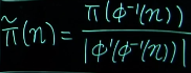 π̃(n) = π(φ⁻¹(n)) / |φ'(φ⁻¹(n))|